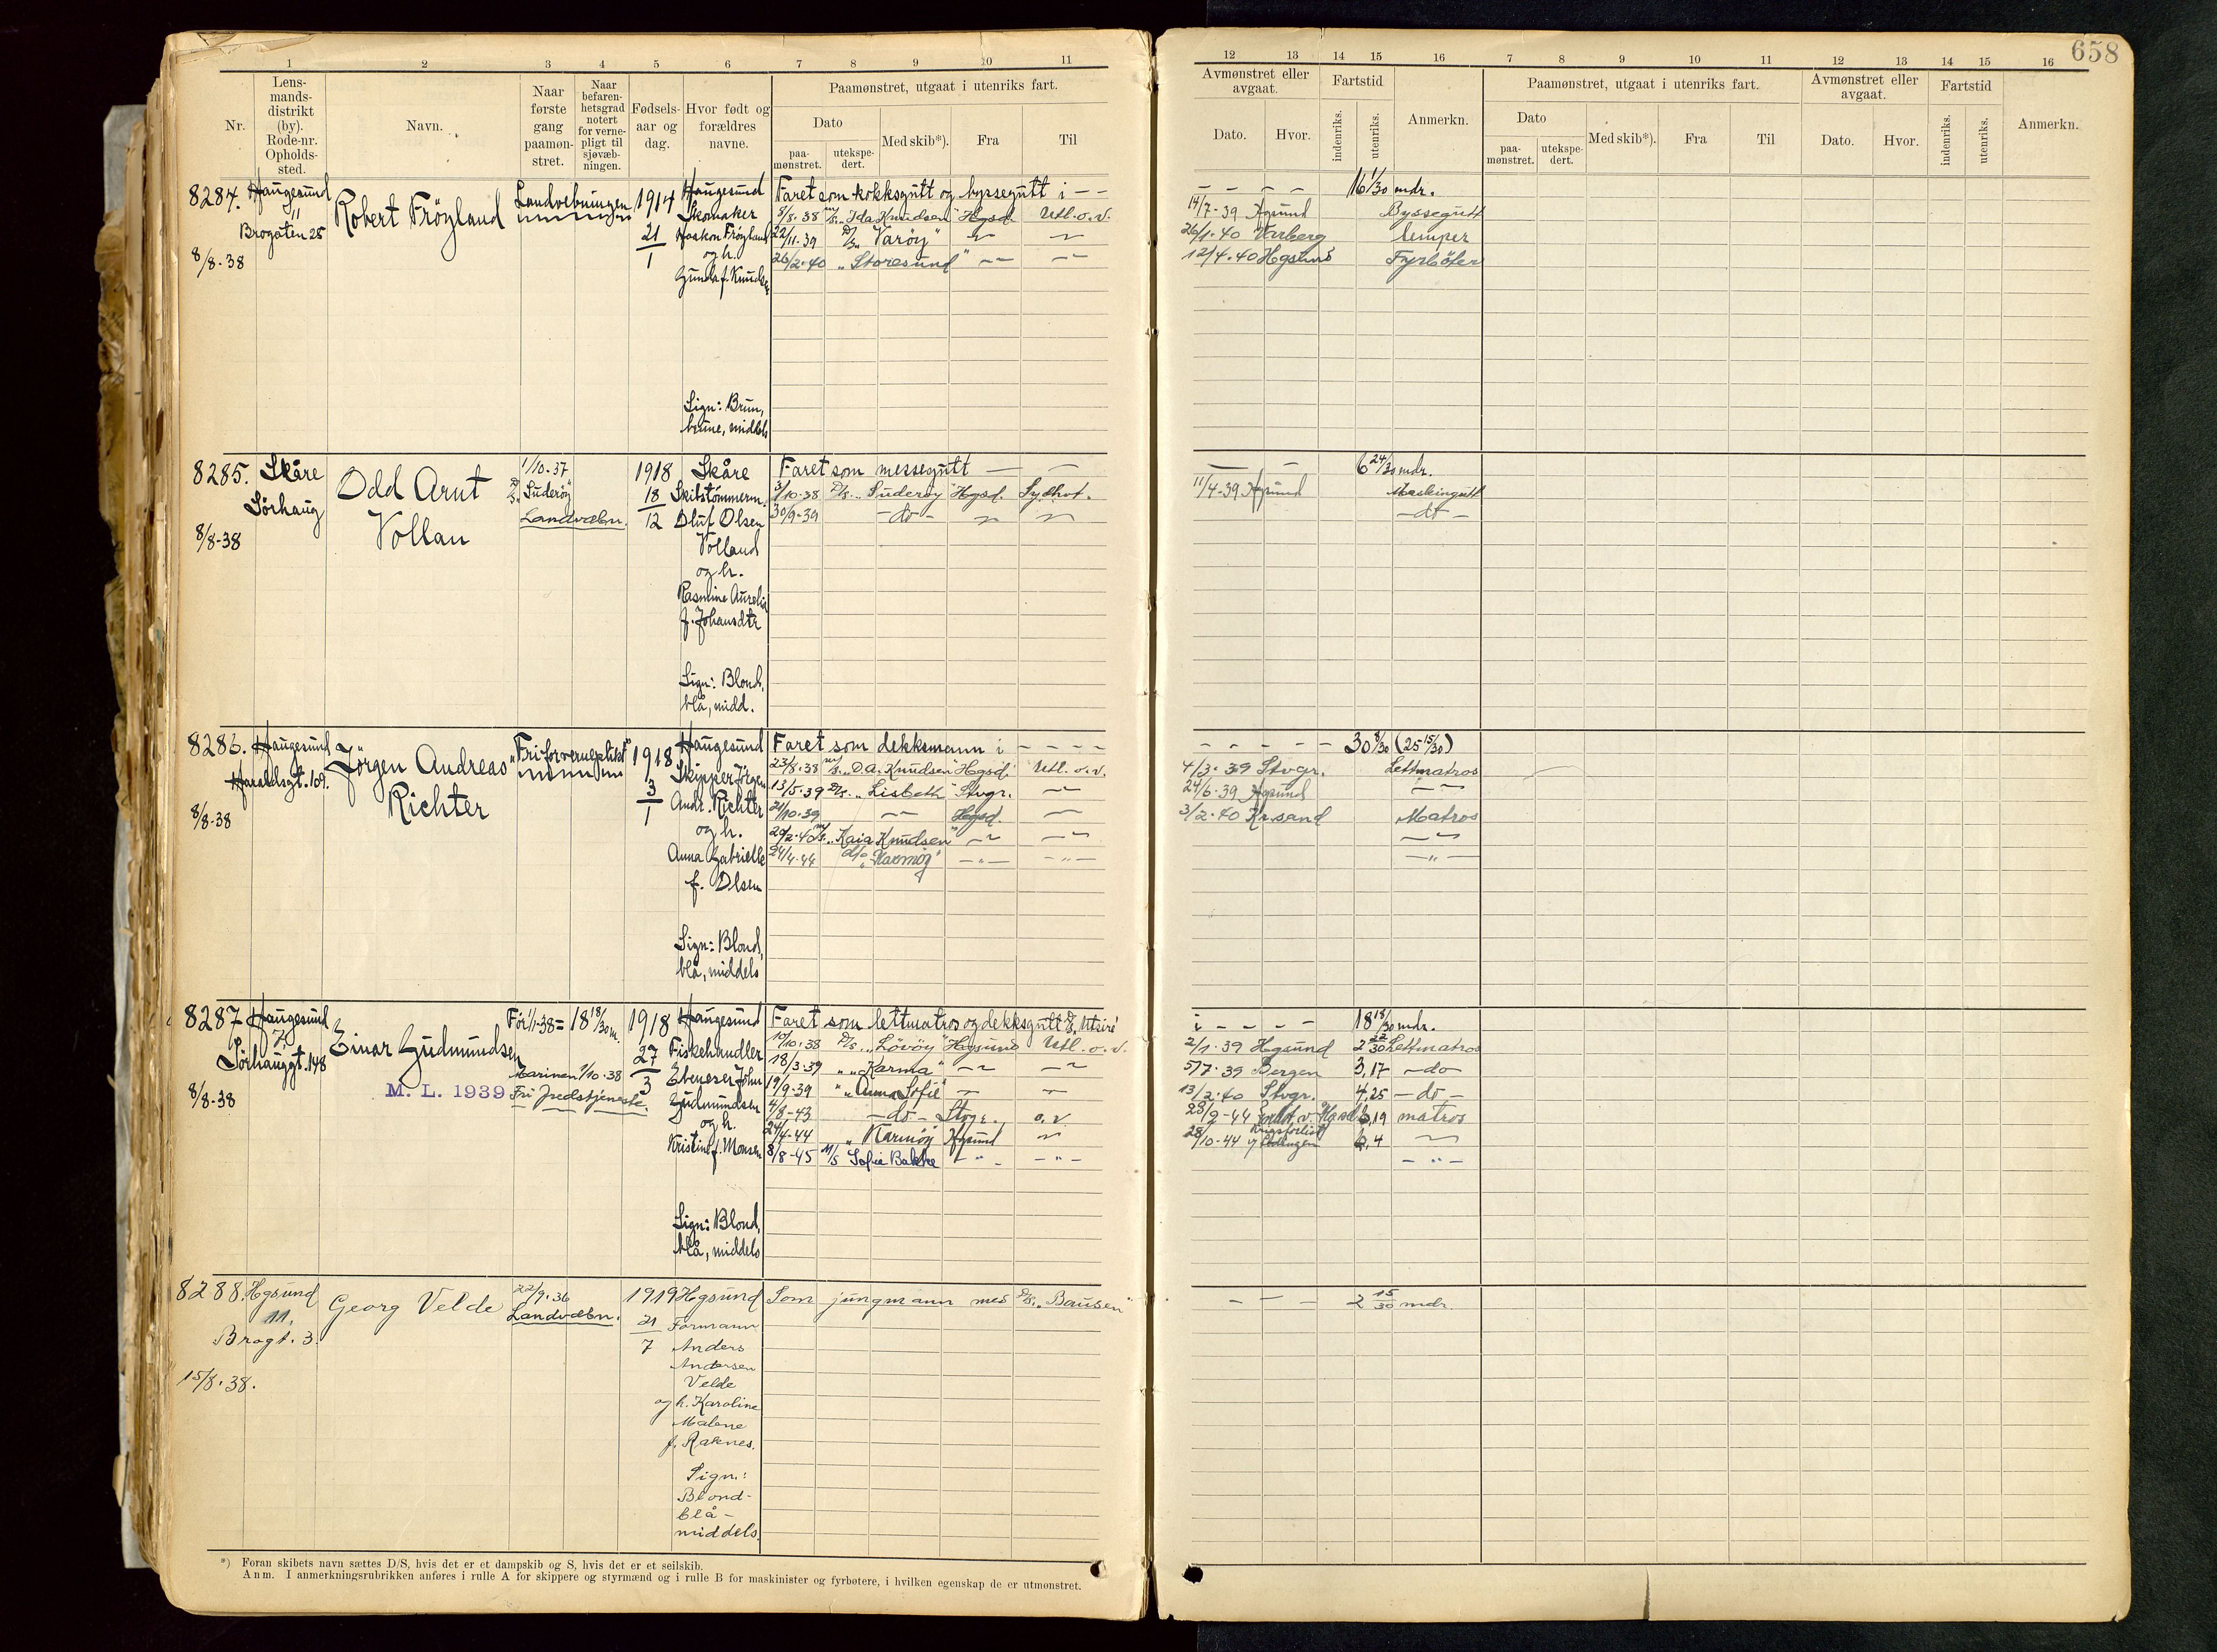 658
1 2 3 4 5 6 7 8 9 10 11
12 13 14 15 16 7 8 9 10 11 12 13 14 15 16
Nr.
Lens-
mands-
distrikt
(by).
Rode-nr.
Opholds-
sted.
Navn.
Naar
første
gang
paamøn-
stret.
Naar
befaren-
hetsgrad
notert
for verne-
pligt til
sjøvæb-
ningen.
Fødsels-
aar og
dag.
Hvor født og
forældres
navne.
Paamønstret, utgaat i utenriks fart.
Dato
paa-
mønstret.
utekspe-
dert.
Med skib*).
Fra
Til
Avmønstret eller
avgaat.
Dato.
Hvor.
Fartstid
indenriks.
utenriks.
Anmerkn.
Paamønstret, utgaat i utenriks fart.
Dato
paa-
mønstret.
utekspe-
dert.
Med skib*).
Fra
Til
Avmønstret eller
avgaat.
Dato.
Hvor.
Fartstid
indenriks.
utenriks.
Anmerkn.
8284. Haugesund
11
Brogaten 25
8/8-38
Robert Frøyland
Landvebningen
1914
21
1
Haugesund
Skomaker
Haakon Frøyland
og h.
Gunda f. Knudsen
Sign: Brun,
brune, middels
Faret som kokksgutt og byssegutt i - -
8/8.38 m/s. „Ida Knudsen" Hgsd. Utl.o.v.
22/11-39 D/s. „Varøy"
26/2-40 „Storesund"
- - - - 16 1/30 mdr.
14/7-39 Hgsund Byssegutt
26/1-40 Varberg lemper
12/4.40 Hgsund Fyrbøter
8285. Skåre
Sørhaug
8/8-38
Odd Arnt
Vollan
1/10-37
D/s. „Suderøy"
Landvæbn.
1918
18
12
Skåre
Skibstømmerm.
Oluf Olsen
Volland
og h.
Rasmine Aurelia
f. Johansdtr
Sign: Blond,
blå, midd.
Faret som messegutt — —
3/10-38 D/s. „Suderøy" Hgsd. Sydhvt.
30/9-39 -do-
— — 6 24/30 mdr.
11/4-39 Hgsund Maskingutt
-do-
8286. Haugesund
Haraldsgt. 109.
8/8-38
Jørgen Andreas
Richter
"Fri for verneplikt"
1918
3
1
Haugesund
Skipper Jørgen
Andr. Richter
og h.
Anna Gabrielle
f. Olsen
Sign: Blond,
blå, middels
Faret som dekksmann i - - - -
23/8.38 m/s. „D.A. Knudsen" Hgsd. Utl.o.v.
13/5.39 D/s. „Lisbeth" Stvgr.
21/10-39 Hgsd.
20/2-40 m/s. „Kaia Knudsen"
24/4-44 d/s „Karmøy" -"- -"-
- - - - - 30 8/30 (25 15/30)
4/3-39 Stvgr. Lettmatros
24/6-39 Hgsund
3/2-40 Kr.sand Matros
-"-
8287 Haugesund
7
Sørhauggt. 148
8/8-38
Einar Gudmundsen
M. L. 1939
Før 1/1-38 = 18 18/30 m.
Marinen 1/10-38
Fri fredstjeneste.
1918
27
3
Haugesund
Fiskehandler
Ebeneser John
Gudmundsen
og h.
Kristine f. Monsen
Sign: Blond,
blå, middels
Faret som lettmatros og dekksgutt D/s. „Utsire"
10/10.38 D/s. „Løvøy" Hgsund Utl.o.v.
18/3-39 " „Karma"
19/9-39 " „Anna Sofie"
4/8-43 -do- Stvgr. o.v.
24/4-44 „Karmøy Hgsund
8/8-45 M/S Sofie Bakke -"- -"-
i - - - - 18 18/30 mdr.
2/1-39 Hgsund 2 22/30 Lettmatros
5/7-39 Bergen 3,17 -do-
13/2-40 Stvgr. 4,25 -do-
28/2-44 6,19 matros
28/10-44 Krigsforlist 6,4
-"-
8288. Hgsund
11.
Brogt. 3.
15/8.38.
Georg Velde
22/9.36
Landvæbn.
1919
21
7
Hgsund
Formann
Anders
Andersen
Velde
og h. Karoline
Malene
f. Raknes.
Sign.:
Blond-
blå-
middels.
Som jungmann med D/s. „Bausen"
- - - 2 15/30 mdr.
*) Foran skibets navn sættes D/S, hvis det er et dampskib og S, hvis det er et seilskib.
Anm. I anmerkningsrubrikken anføres i rulle A for skippere og styrmænd og i rulle B for maskinister og fyrbøtere, i hvilken egenskap de er utmønstret.